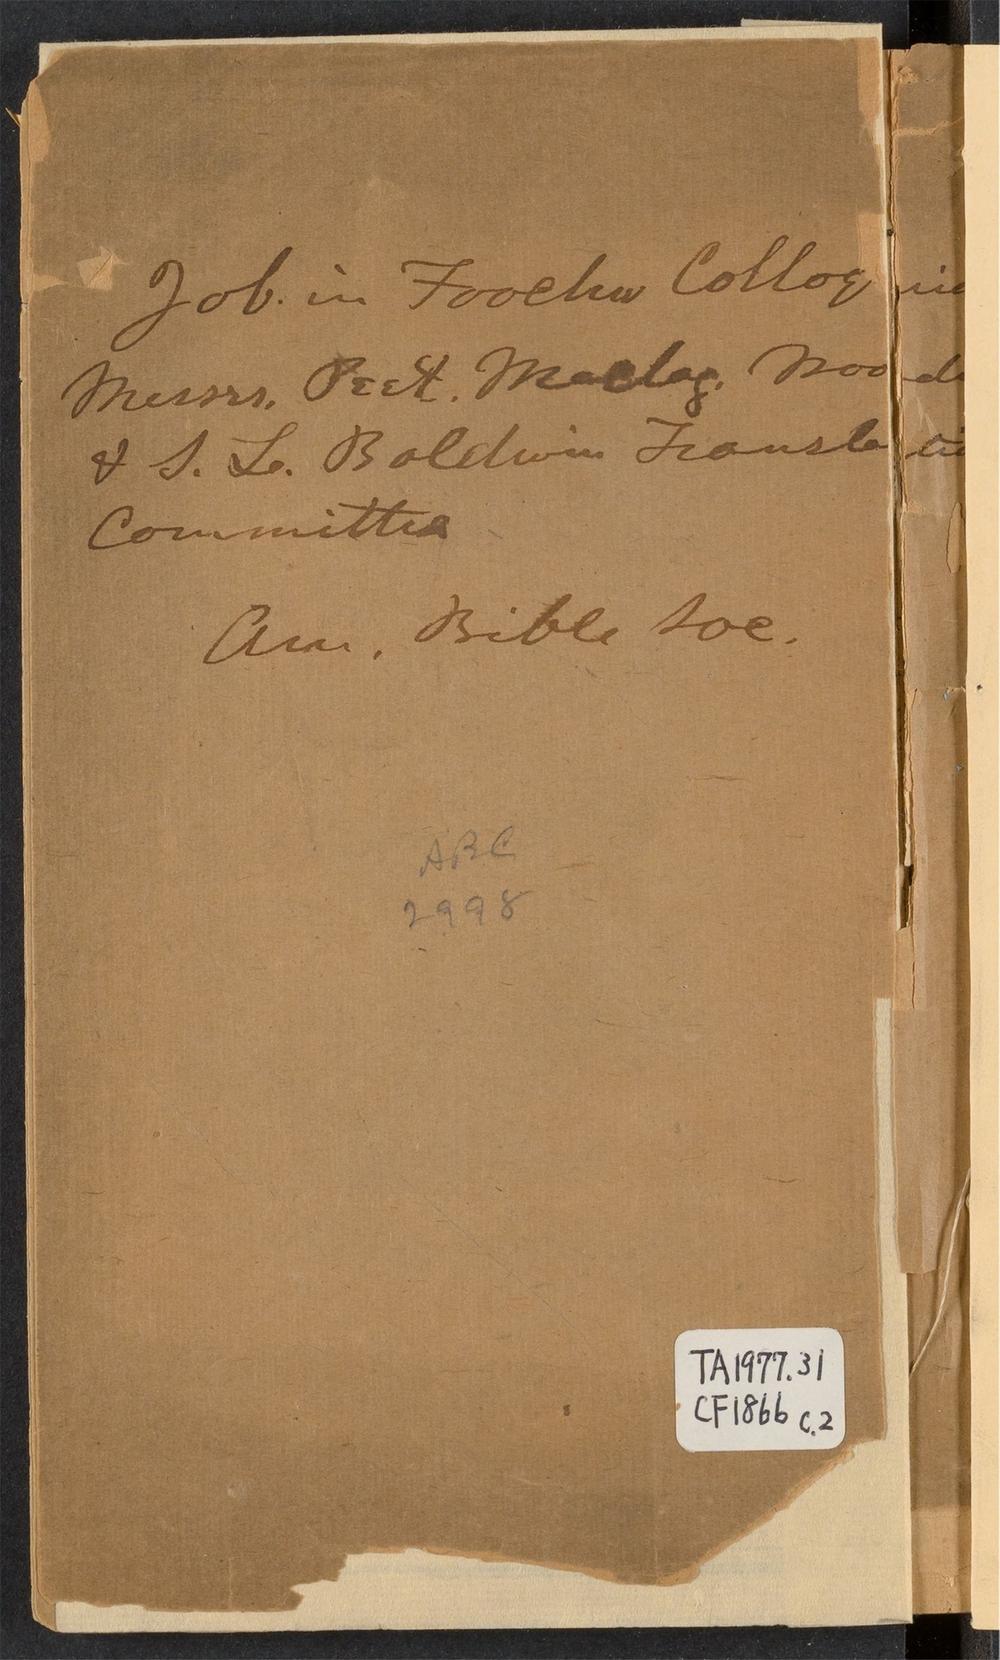 Job. in Foochw Colloq uia
Messrs. Peet. Maclag. Woo de
& S. L. Baldwin Transla tio
Committee
Am. Bible Soc.
ABC
2998
TA1977.31
CF1866 C.2